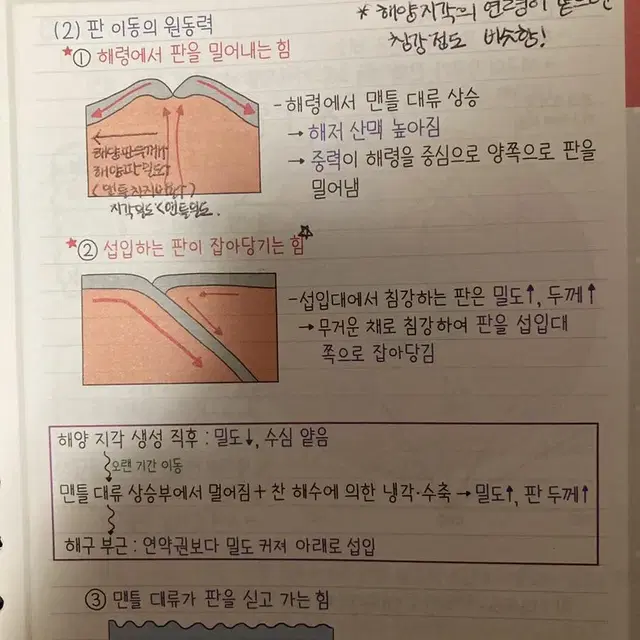 (2) 판 이동의 원동력
* 해양지각의 연령이
침강 정도 비슷함!
*① 해령에서 판을 밀어내는 힘
- 해령에서 맨틀 대류 상승
→ 해저 산맥 높아짐
→ 중력이 해령을 중심으로 양쪽으로 판을
밀어냄
해양판두께↑
해양판밀도↑
지각밀도<맨틀밀도.
*② 섭입하는 판이 잡아당기는 힘☆
- 섭입대에서 침강하는 판은 밀도↑, 두께↑
→ 무거운 채로 침강하여 판을 섭입대
쪽으로 잡아당김
해양 지각 생성 직후 : 밀도↓, 수심 얕음
오랜 기간 이동
맨틀 대류 상승부에서 멀어짐 + 찬 해수에 의한 냉각·수축 → 밀도↑, 판 두께↑
해구 부근 : 연약권보다 밀도 커져 아래로 섭입
③ 맨틀 대류가 판을 싣고 가는 힘